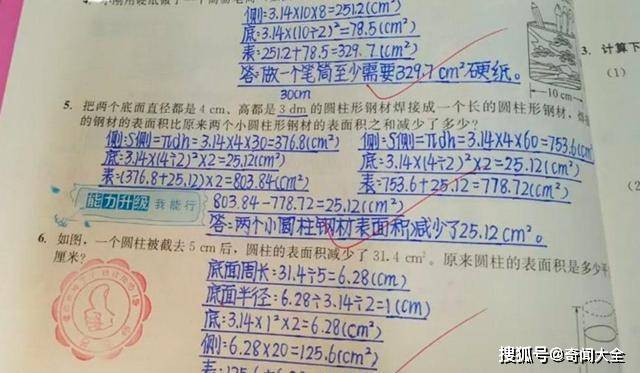 侧:3.14×10×8=251.2(cm²)
底:3.14×(10÷2)²=78.5(cm²)
表:251.2+78.5=329.7(cm²)
答:做一个笔筒至少需要329.7cm²硬纸。
10 cm
3. 计算下
(1)
30cm
5. 把两个底面直径都是 4 cm、高都是 3 dm 的圆柱形钢材焊接成一个长的圆柱形钢材,焊
的钢材的表面积比原来两个小圆柱形钢材的表面积之和减少了多少?
侧:S侧=πdh=3.14×4×30=376.8(cm²)
底:3.14×(4÷2)²×2=25.12(cm²)
表:(376.8+25.12)×2=803.84(cm²)
侧:S侧=πdh=3.14×4×60=753.6(cm²)
底:3.14×(4÷2)²×2=25.12(cm²)
表:753.6+25.12=778.72(cm²)
能力升级 我能行
803.84-778.72=25.12(cm²)
答:两个小圆柱钢材表面积减少了25.12cm²。
(2
6. 如图,一个圆柱被截去 5 cm 后,圆柱的表面积减少了 31.4 cm²。原来圆柱的表面积是多少平
厘米?
底面周长:31.4÷5=6.28(cm)
底面半径:6.28÷3.14÷2=1(cm)
底:3.14×1²×2=6.28(cm²)
侧:6.28×20=125.6(cm²)
搜狐号@奇闻大全